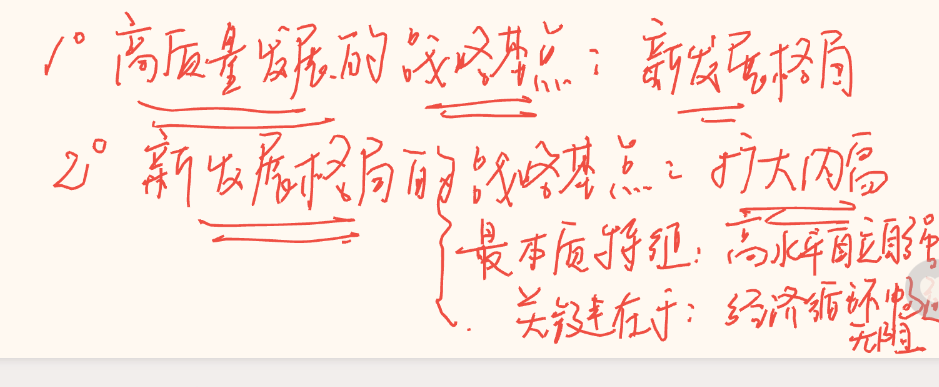 1° 高质量发展的战略基点：新发展格局
2° 新发展格局的战略基点：扩大内需
最本质特征：高水平自立自强
关键在于：经济循环
无阻